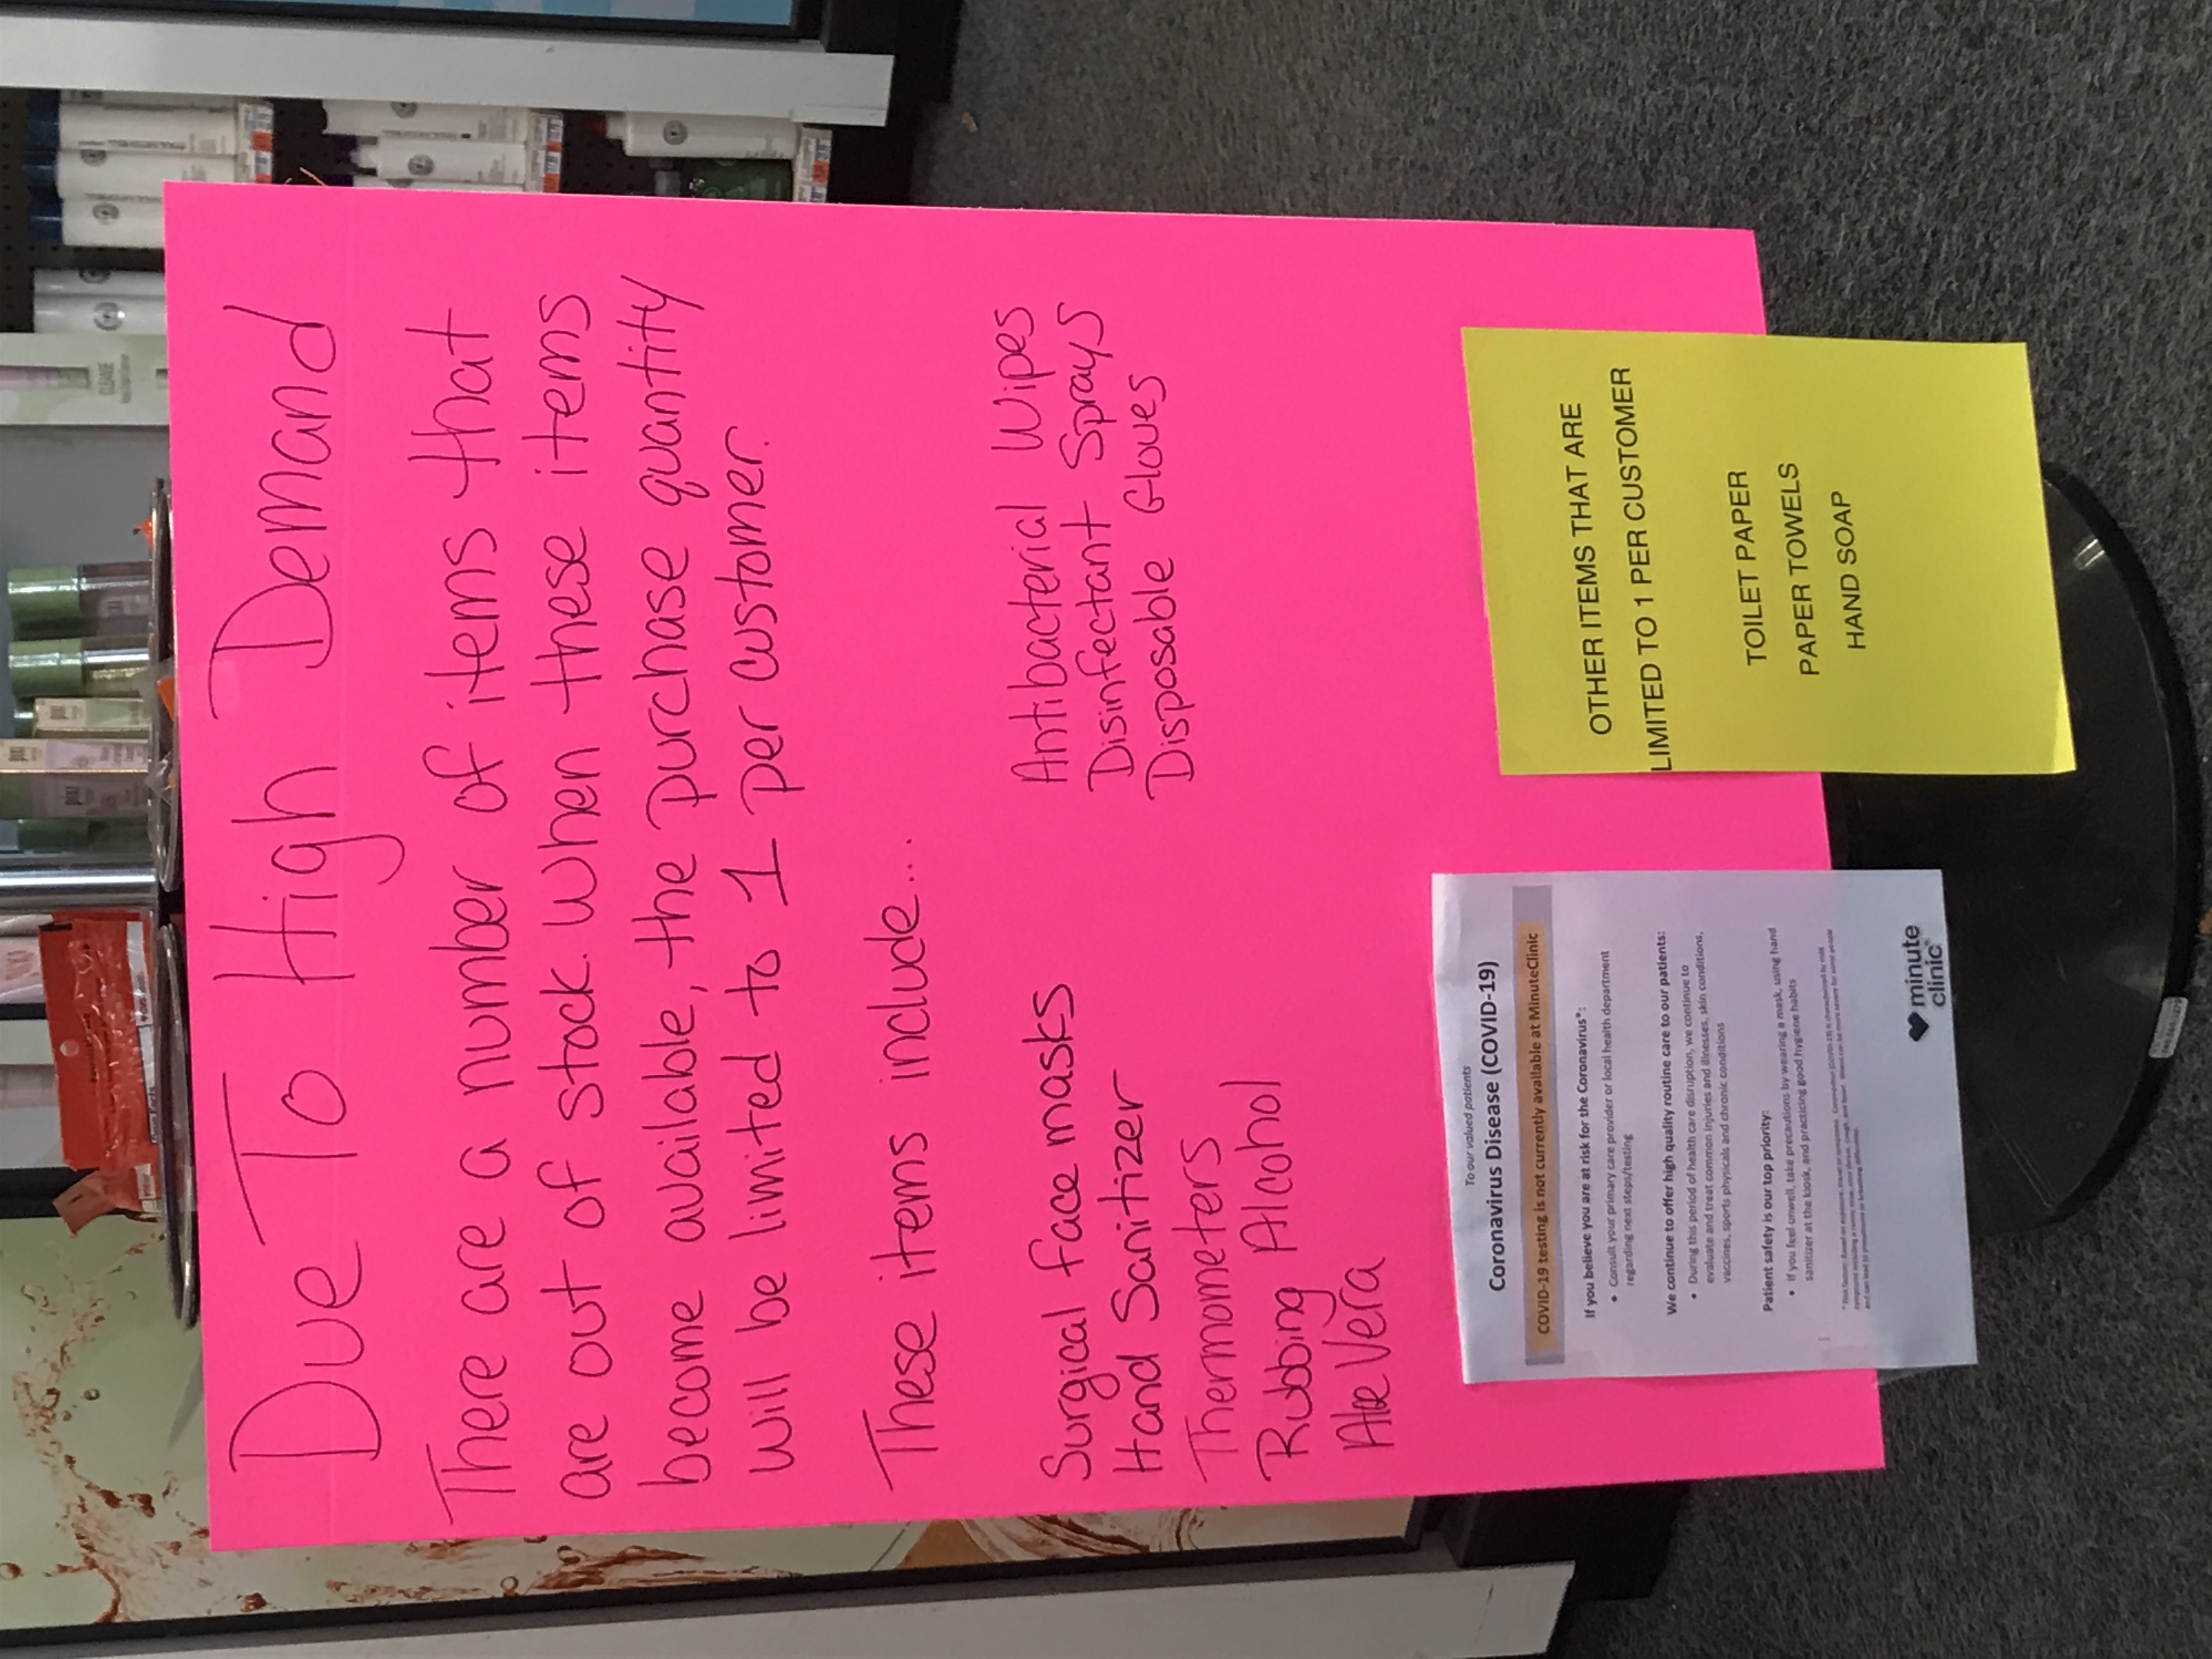 Due To High Demand
There are a number of items that
are out of stock. When these items
become available, the purchase quantity
will be limited to 1 per customer.
These items include...
Surgical face masks
Hand Sanitizer
Thermometers
Rubbing Alcohol
Aloe Vera
Antibacterial Wipes
Disinfectant Sprays
Disposable Gloves
To our valued patients
Coronavirus Disease (COVID-19)
COVID-19 testing is not currently available at MinuteClinic
If you believe you are at risk for the Coronavirus*:
• Consult your primary care provider or local health department
regarding next steps/testing
We continue to offer high quality routine care to our patients:
• During this period of health care disruption, we continue to
evaluate and treat common injuries and illnesses, skin conditions,
vaccines, sports physicals and chronic conditions
Patient safety is our top priority:
• If you feel unwell, take precautions by wearing a mask, using hand
sanitizer at the kiosk, and practicing good hygiene habits
minute
clinic
OTHER ITEMS THAT ARE
LIMITED TO 1 PER CUSTOMER
TOILET PAPER
PAPER TOWELS
HAND SOAP
CLEANSE